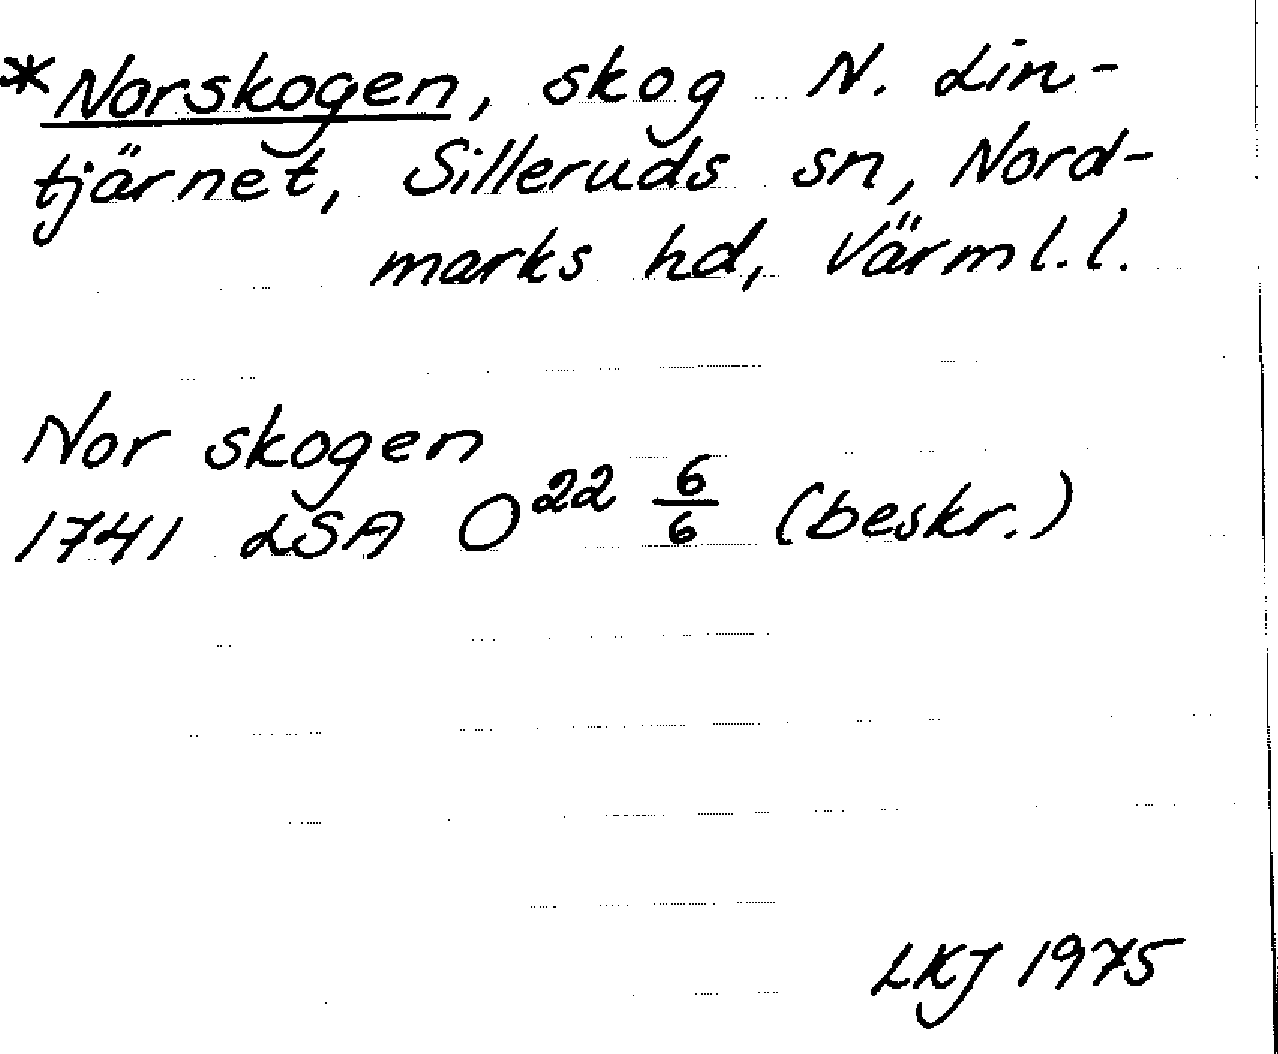 *Norskogen, skog N. Lin-
tjärnet, Silleruds sn, Nord-
marks hd, Värml.l.
Nor skogen
1741 LSA O²² 6/6 (beskr.)
LKJ 1975